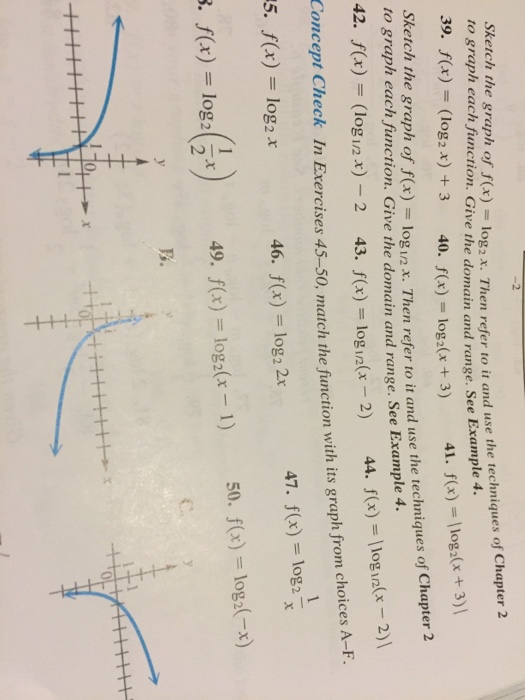 −2
Sketch the graph of f(x) = log₂ x. Then refer to it and use the techniques of Chapter 2
to graph each function. Give the domain and range. See Example 4.
39. f(x) = (log₂ x) + 3 40. f(x) = log₂(x + 3) 41. f(x) = |log₂(x + 3)|
Sketch the graph of f(x) = log₁/₂ x. Then refer to it and use the techniques of Chapter 2
to graph each function. Give the domain and range. See Example 4.
42. f(x) = (log₁/₂ x) − 2 43. f(x) = log₁/₂(x − 2) 44. f(x) = |log₁/₂(x − 2)|
Concept Check In Exercises 45–50, match the function with its graph from choices A–F.
45. f(x) = log₂ x 46. f(x) = log₂ 2x 47. f(x) = log₂ 1/x
8. f(x) = log₂(1/2 x) 49. f(x) = log₂(x − 1) 50. f(x) = log₂(−x)
B. C.
y y y
x x
0 1 0 0
1